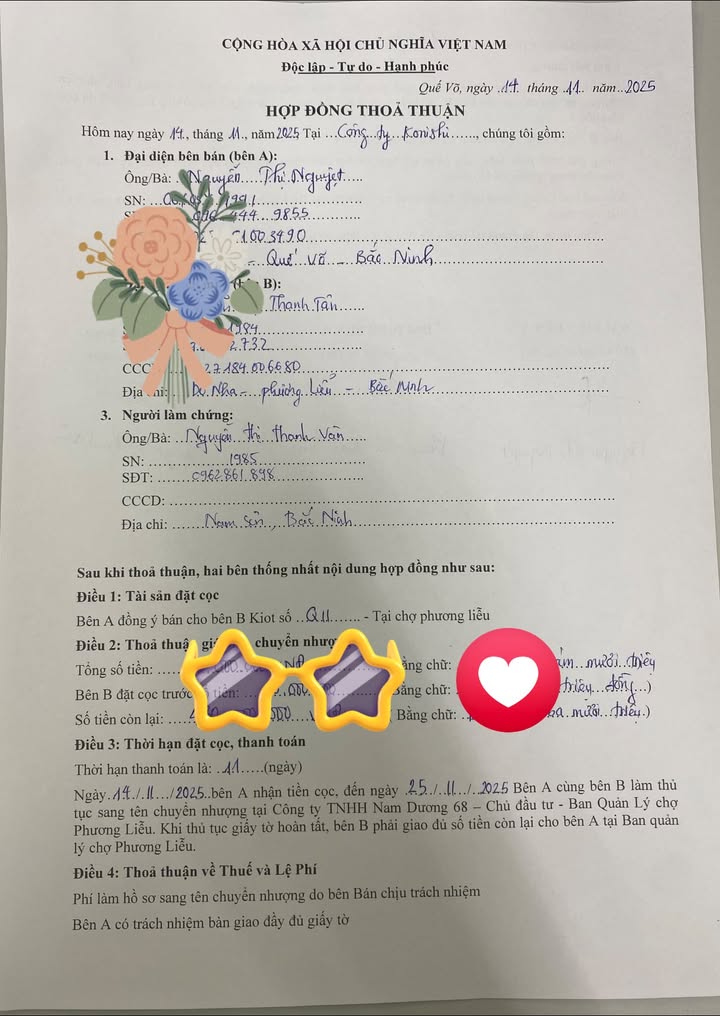 CỘNG HÒA XÃ HỘI CHỦ NGHĨA VIỆT NAM
Độc lập - Tự do - Hạnh phúc
Quế Võ, ngày 14 tháng 11 năm 2025
HỢP ĐỒNG THOẢ THUẬN
Hôm nay ngày 14, tháng 11, năm 2025 Tại Công ty Konishi, chúng tôi gồm:
1. Đại diện bên bán (bên A):
Ông/Bà: Nguyễn Thị Nguyệt
SN: 1991
444 9855
61003490
- Quế Võ - Bắc Ninh
B):
Thanh Tân
1984
2.732
CCC 27184.006680
Địa chỉ: Nha - phường Liễu - Bắc Ninh
3. Người làm chứng:
Ông/Bà: Nguyễn Thị Thanh Vân
SN: 1985
SĐT: 0962.861.898
CCCD:
Địa chỉ: Nam Sơn, Bắc Ninh
Sau khi thoả thuận, hai bên thống nhất nội dung hợp đồng như sau:
Điều 1: Tài sản đặt cọc
Bên A đồng ý bán cho bên B Kiot số Q11 - Tại chợ phương liễu
Điều 2: Thoả thuận chuyển nhượ
Tổng số tiền: ằng chữ: mươi triệu
Bên B đặt cọc trước tiền: Bằng chữ: triệu đồng)
Số tiền còn lại: Bằng chữ: mươi triệu)
Điều 3: Thời hạn đặt cọc, thanh toán
Thời hạn thanh toán là: 11 (ngày)
Ngày 14/11/2025 bên A nhận tiền cọc, đến ngày 25/11/2025 Bên A cùng bên B làm thủ
tục sang tên chuyển nhượng tại Công ty TNHH Nam Dương 68 – Chủ đầu tư - Ban Quản Lý chợ
Phương Liễu. Khi thủ tục giấy tờ hoàn tất, bên B phải giao đủ số tiền còn lại cho bên A tại Ban quản
lý chợ Phương Liễu.
Điều 4: Thoả thuận về Thuế và Lệ Phí
Phí làm hồ sơ sang tên chuyển nhượng do bên Bán chịu trách nhiệm
Bên A có trách nhiệm bàn giao đầy đủ giấy tờ